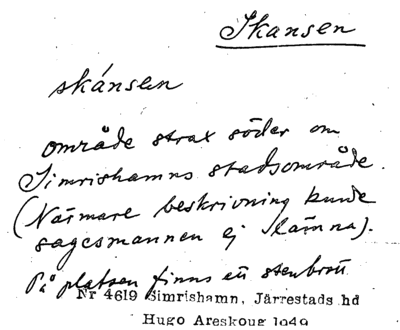 Skansen
skánsen
område strax söder om
Simrishamns stadsområde.
(Närmare beskrivning kunde
sagesmannen ej lämna).
På platsen finns ett stenbrott
Nr 4619 Simrishamn, Järrestads hd
Hugo Areskoug 1949